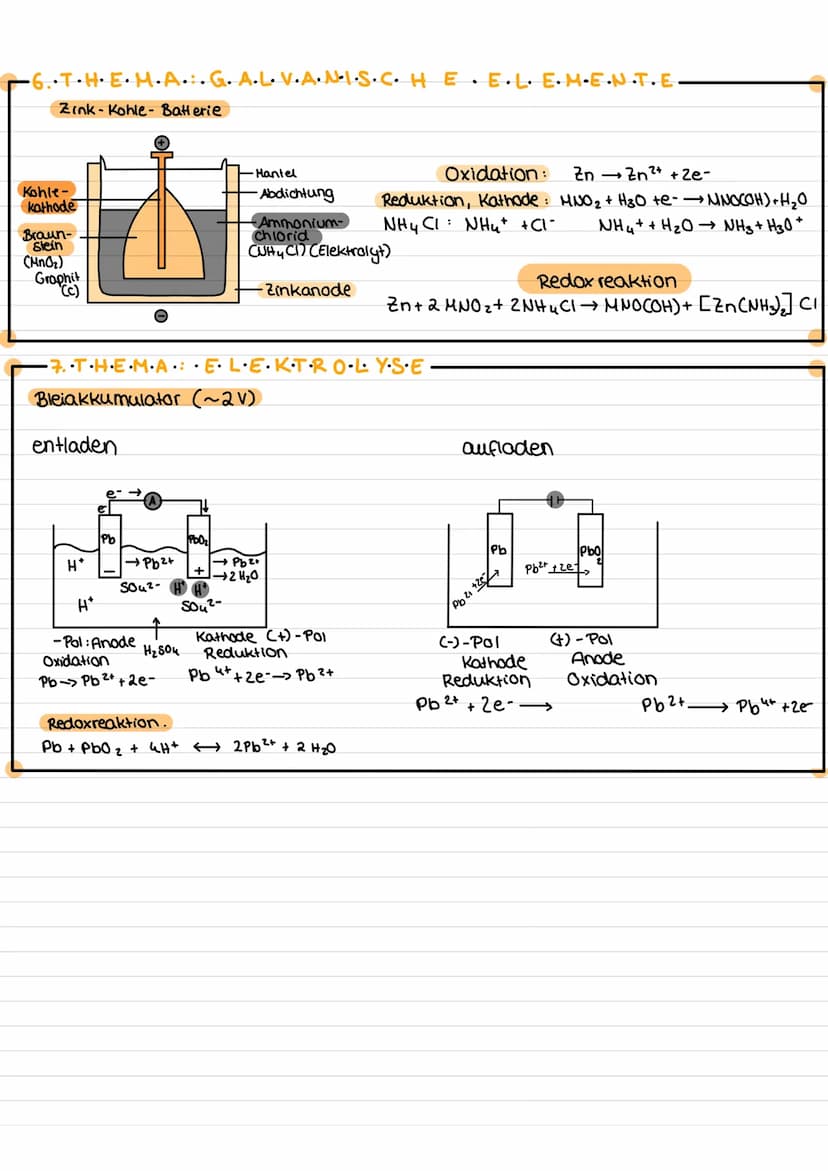 6. THEMA: GALVANISCHE ELEMENTE
Zink-Kohle-Batterie
+
Kohle-
kathode
Braun-
stein
(MnO₂)
Graphit
(C)
Mantel
Abdichtung
Ammonium-
chlorid
(NH₄Cl) (Elektrolyt)
Zinkanode
−
Oxidation: Zn → Zn²⁺ + 2e-
Reduktion, Kathode: MNO₂ + H₃O + e- → MNO(OH) + H₂O
NH₄Cl: NH₄⁺ + Cl⁻ NH₄⁺ + H₂O → NH₃ + H₃O⁺
Redoxreaktion
Zn + 2 MNO₂ + 2NH₄Cl → MNO(OH) + [Zn(NH₃)₂] Cl
7. THEMA: ELEKTROLYSE
Bleiakkumulator (~2V)
entladen
e- →
A
e-
Pb
PbO₂
H⁺
→ Pb²⁺
→ Pb²⁺
→ 2 H₂O
−
+
SO₄²⁻
H⁺ H⁺
H⁺
SO₄²⁻
H₂SO₄
-Pol: Anode
Oxidation
Pb → Pb²⁺ + 2e-
Kathode (+)-Pol
Reduktion
Pb⁴⁺ + 2e- → Pb²⁺
Redoxreaktion.
Pb + PbO₂ + 4H⁺ ↔ 2Pb²⁺ + 2 H₂O
aufladen
Pb
PbO₂
Pb²⁺ + 2e-
Pb²⁺ + 2e-
(-)-Pol
Kathode
Reduktion
Pb²⁺ + 2e- →
(+)-Pol
Anode
Oxidation
Pb²⁺ → Pb⁴⁺ + 2e-